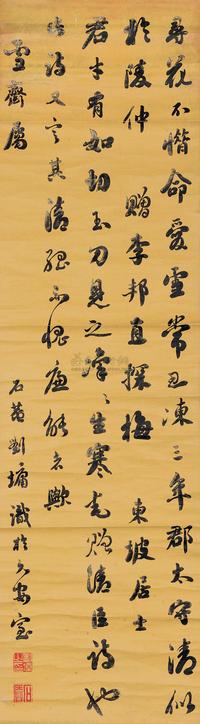 尋花不惜命愛雪常忍凍三年郡太守清似
於陵仲 贈李邦直探梅 東坡居士
君才有如切玉刀見之凜〻生寒毛贈清臣詩也
此詩又言其清 不愧廉能者歟
雪齋屬
石菴劉墉識於 室